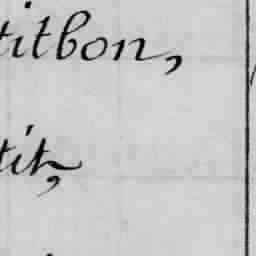 titbon,
tit,